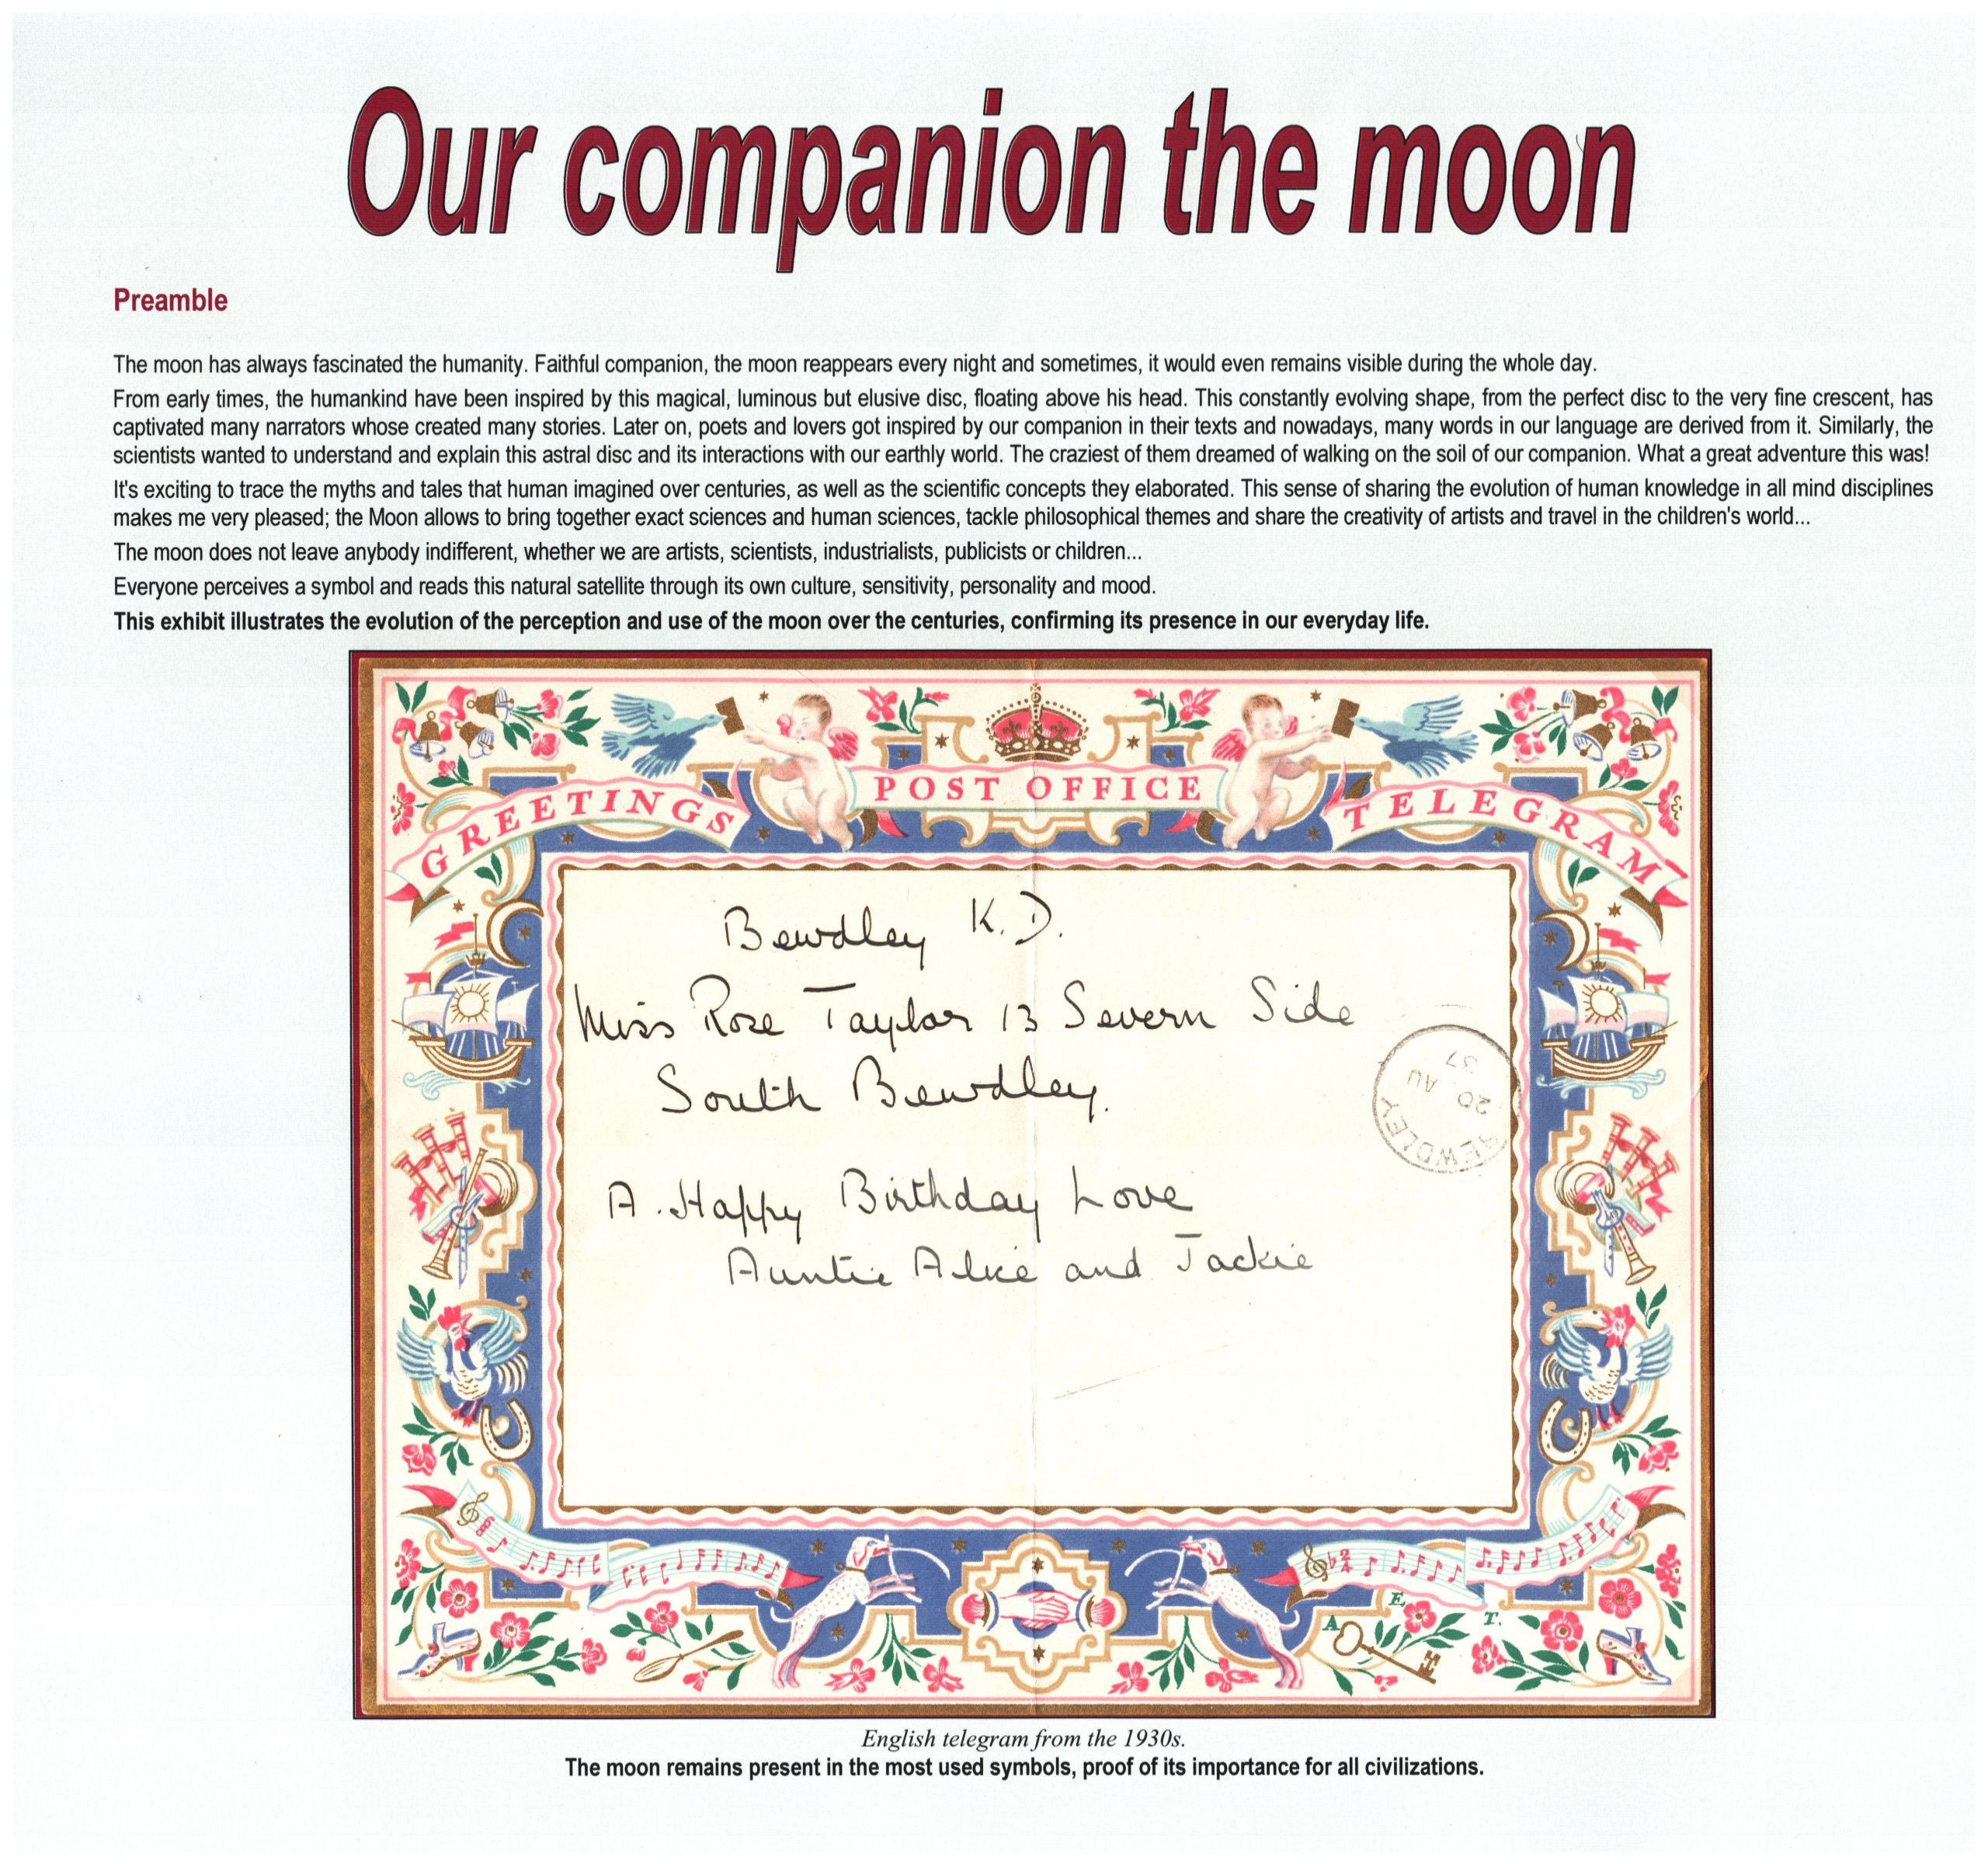 Our companion the moon
Preamble
The moon has always fascinated the humanity. Faithful companion, the moon reappears every night and sometimes, it would even remains visible during the whole day.
From early times, the humankind have been inspired by this magical, luminous but elusive disc, floating above his head. This constantly evolving shape, from the perfect disc to the very fine crescent, has
captivated many narrators whose created many stories. Later on, poets and lovers got inspired by our companion in their texts and nowadays, many words in our language are derived from it. Similarly, the
scientists wanted to understand and explain this astral disc and its interactions with our earthly world. The craziest of them dreamed of walking on the soil of our companion. What a great adventure this was!
It's exciting to trace the myths and tales that human imagined over centuries, as well as the scientific concepts they elaborated. This sense of sharing the evolution of human knowledge in all mind disciplines
makes me very pleased; the Moon allows to bring together exact sciences and human sciences, tackle philosophical themes and share the creativity of artists and travel in the children's world...
The moon does not leave anybody indifferent, whether we are artists, scientists, industrialists, publicists or children...
Everyone perceives a symbol and reads this natural satellite through its own culture, sensitivity, personality and mood.
This exhibit illustrates the evolution of the perception and use of the moon over the centuries, confirming its presence in our everyday life.
GREETINGS POST OFFICE TELEGRAM
Bewdley K.D.
Miss Rose Taylor 13 Severn Side
South Bewdley.
BEWDLEY
20 AU
37
A. Happy Birthday Love
Auntie Alice and Jackie
A. E. T.
English telegram from the 1930s.
The moon remains present in the most used symbols, proof of its importance for all civilizations.